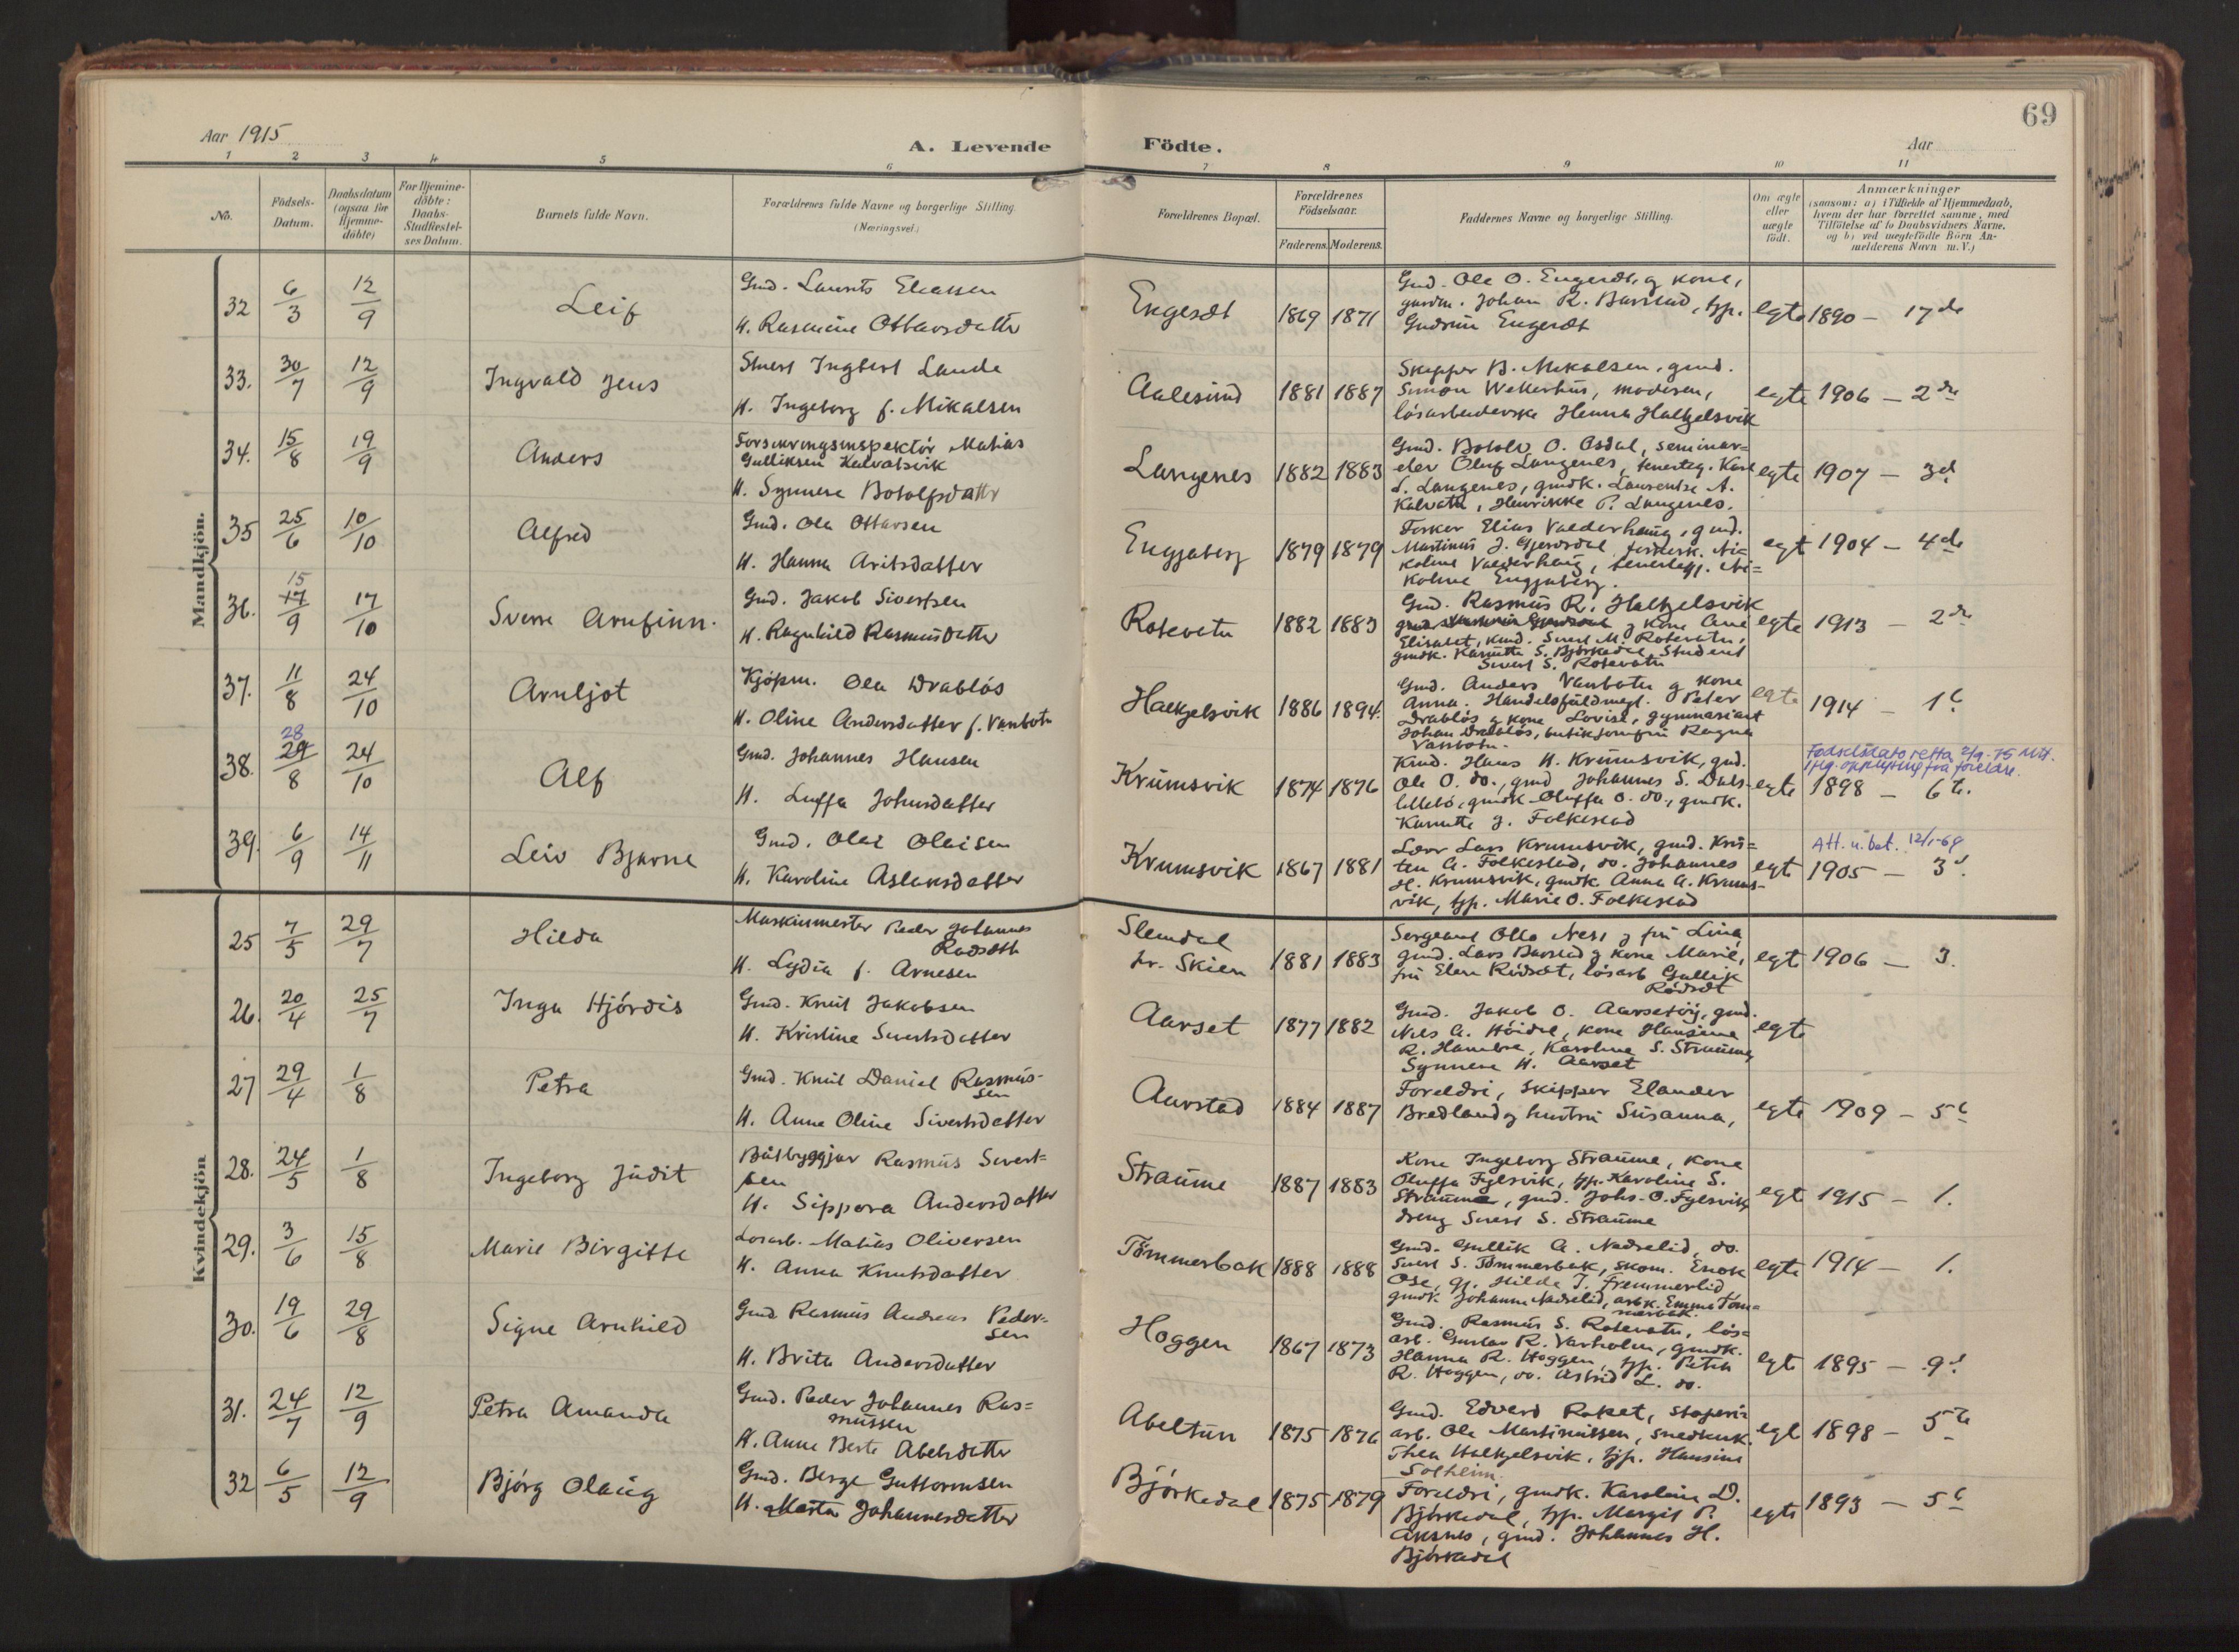 69
Aar 1915
A. Levende Födte.
Aar
1 2 3 4 5 6 7 8 9 10 11
No.
Födsels-
Datum.
Daabsdatum
(ogsaa for
Hjemme-
döbte)
For Hjemme-
döbte:
Daabs-
Stadfæstel-
ses Datum.
Barnets fulde Navn.
Forældrenes fulde Navne og borgerlige Stilling.
(Næringsvei.)
Forældrenes Bopæl.
Forældrenes
Födselsaar.
Faderens. Moderens.
Faddernes Navne og borgerlige Stilling.
Om ægte
eller
uægte
født.
Anmærkninger
(saasom: a) i Tilfælde af Hjemmedaab,
hvem der har forrettet samme, med
Tilføielse af to Daabsvidners Navne,
og b) ved uægtefödte Börn An-
melderens Navn m. V.)
Mandkjön.
32 6/3 12/9 Leif
Gmd. Laurits Eliassen
H. Rasmine Ottarsdatter
Engeset 1869 1871
Gmd. Ole O. Engeset, og kone,
gardm. Johan R. Barstad, tjp.
Gudrun Engeset
egte 1890 – 17de
33. 30/7 12/9 Ingvald Jens
Stuert Ingbert Lande
H. Ingeborg f. Mikalsen
Aalesund 1881 1887
Skipper B. Mikalsen, gmd.
Simon Welle, moderen,
lösarbeiderske Henna Halkjelsvik
egte 1906 – 2de
34. 15/8 19/9 Anders
Forsikringsinspektör Matias
Gulliksen Kalvatsvik
H. Synnere Botolfsdatter
Langenes 1882 1883
Gmd. Botolv O. Osdal, seminar=
elev Oluf Langenes, Kare
S. Langenes, gmdk. Laurentse A.
Kalvatn, Henrikke P. Langenes.
egte 1907 – 3d
35 25/6 10/10 Alfred
Gmd. Ola Ottarsen
H. Hanna Aritsdatter
Engjaberg 1879 1879
Fisker Elias Valderhaug, gmd.
Martinus J. Gjerdsdal, Ni=
koline Valderhaug, Ni=
koline Engjaberg.
egt 1904 – 4de
36. 15 17/9 17/10 Sverre Arnfinn.
Gmd. Jakob Sivertsen
H. Ragnhild Rasmusdatter
Rotevatn 1882 1883
Gmd. Rasmus R. Halkjelsvik
og kone Ane
Elisabet, kmd. Sivert M. Rotevatn,
gmdk. Karnitte S. Björkedal, Student
Sivert S. Rotevatn
egte 1913 – 2de
37. 11/8 24/10 Arnljot
Kjöpm. Ola Drablös
H. Oline Andersdatter f. Vanbotn
Halkjelsvik 1886 1894.
Gmd. Anders Vanbotn og kone
Anna. Handelsfuldmegt. Peter
Drablös og kone Lovise, gymnasiast
Johan Drablös, butikjomfru Ragna
Vanbotn.
egte 1914 – 1e
38. 28 29/8 24/10 Alf
Gmd. Johannes Hansen
H. Luffa Johnsdatter
Krumsvik 1874 1876
Kmd. Hans H. Krumsvik, gmd.
Ole O. do., gmd Johannes S. Dals-
lillebö, gmdk. Oluffa O. do., gmdk.
Karnitte J. Folkestad
egte 1898 – 6te.
Fødselsdato retta 2/9-75
39. 6/9 14/11 Leiv Bjarne
Gmd. Olai Olaisen
H. Karoline Aslaksdatter
Krumsvik 1867 1881
Lærer Lars Krumsvik, gmd. Kris=
ten A. Folkestad, do. Johannes
H. Krumsvik, gmdk. Anna A. Krums-
vik, tjp. Marie O. Folkestad
egt 1905 – 3d.
Att. u. bet. 12/1-69
Kvindekjön
25 7/5 29/7 Hilda
Maskinmester Peder Johannes
Rødseth
H. Lydia f. Arnesen
Slemdal
pr. Skien 1881 1883
Sergeant Otto Ness og fru Lina,
gmd. Lars Barstad og kone Marie,
fru Elen Rödset, lösarb Gullik
Rödset
egt 1906 – 3.
26. 20/4 25/7 Inga Hjördis
Gmd. Knut Jakobsen
H. Kristine Sivertsdatter
Aarset 1877 1882
Gmd. Jakob O. Aarsetöy, gmd.
Nils A. Höidal, kone Hansine
R. Hamre, Karoline S. Straume,
Synnere H. Aarset
egte
27 29/4 1/8 Petra
Gmd. Knut Daniel Rasmus-
sen
H. Anne Oline Sivertsdatter
Aurstad 1884 1887
Foreldri, skipper Elander
Bredland og hustru Susanna,
egte 1909 – 5e
28. 24/5 1/8 Ingeborg Judit
Båtbyggjar Rasmus Sivert=
sen
H. Sippora Andersdatter
Straume 1887 1883
Kone Ingeborg Straume, kone
Oluffa Fylsvik, tjp. Karoline S.
Straume, gmd. Johs. O. Fylsvik,
dreng Sivert S. Straume
egt 1915 – 1.
29. 3/6 15/8 Marie Birgitte
Losarb. Matias Oliversen
H. Anna Knutsdatter
Tömmerbak 1888 1888
Gmd. Gullik A. Nedrelid, do.
Sivert S. Tömmerbak, skom. Enok
Ose, gj. Hilda J. Fremmerlid
gmdk Johanne Nedrelid, arbk. Emma Töm=
merbak.
egte 1914 – 1.
30. 19/6 29/8 Signe Arnhild
Gmd. Rasmus Andreas Peder=
sen
H. Brita Andersdatter
Hoggen 1867 1873
Gmd. Rasmus S. Rotevatn, lös=
arb. Gustav R. Varholm, gmdk.
Hanna R. Hoggen, tjp. Petra
R. Hoggen, do. Astrid L. do.
egt 1895 – 9d.
31. 24/7 12/9 Petra Amanda
Gmd. Peder Johannes Ras=
mussen
H. Anne Berte Abelsdatter
Abeltun 1875 1876
Gmd. Edvard Roket, stoperi=
arb. Ole Martinussen, snedkerk.
Thea Halkjelsvik, tjp. Hansine
Solheim.
egt 1898 – 5te
32 6/5 12/9 Björg Olaug
Gmd. Berge Guttormsen
H. Marta Johannesdatter
Björkedal 1875 1879
Foreldri, gmdk. Karoline D.
Björkedal, tjp. Margit P.
Aksnes, gmd. Johannes H.
Björkedal
egte 1893 – 5e